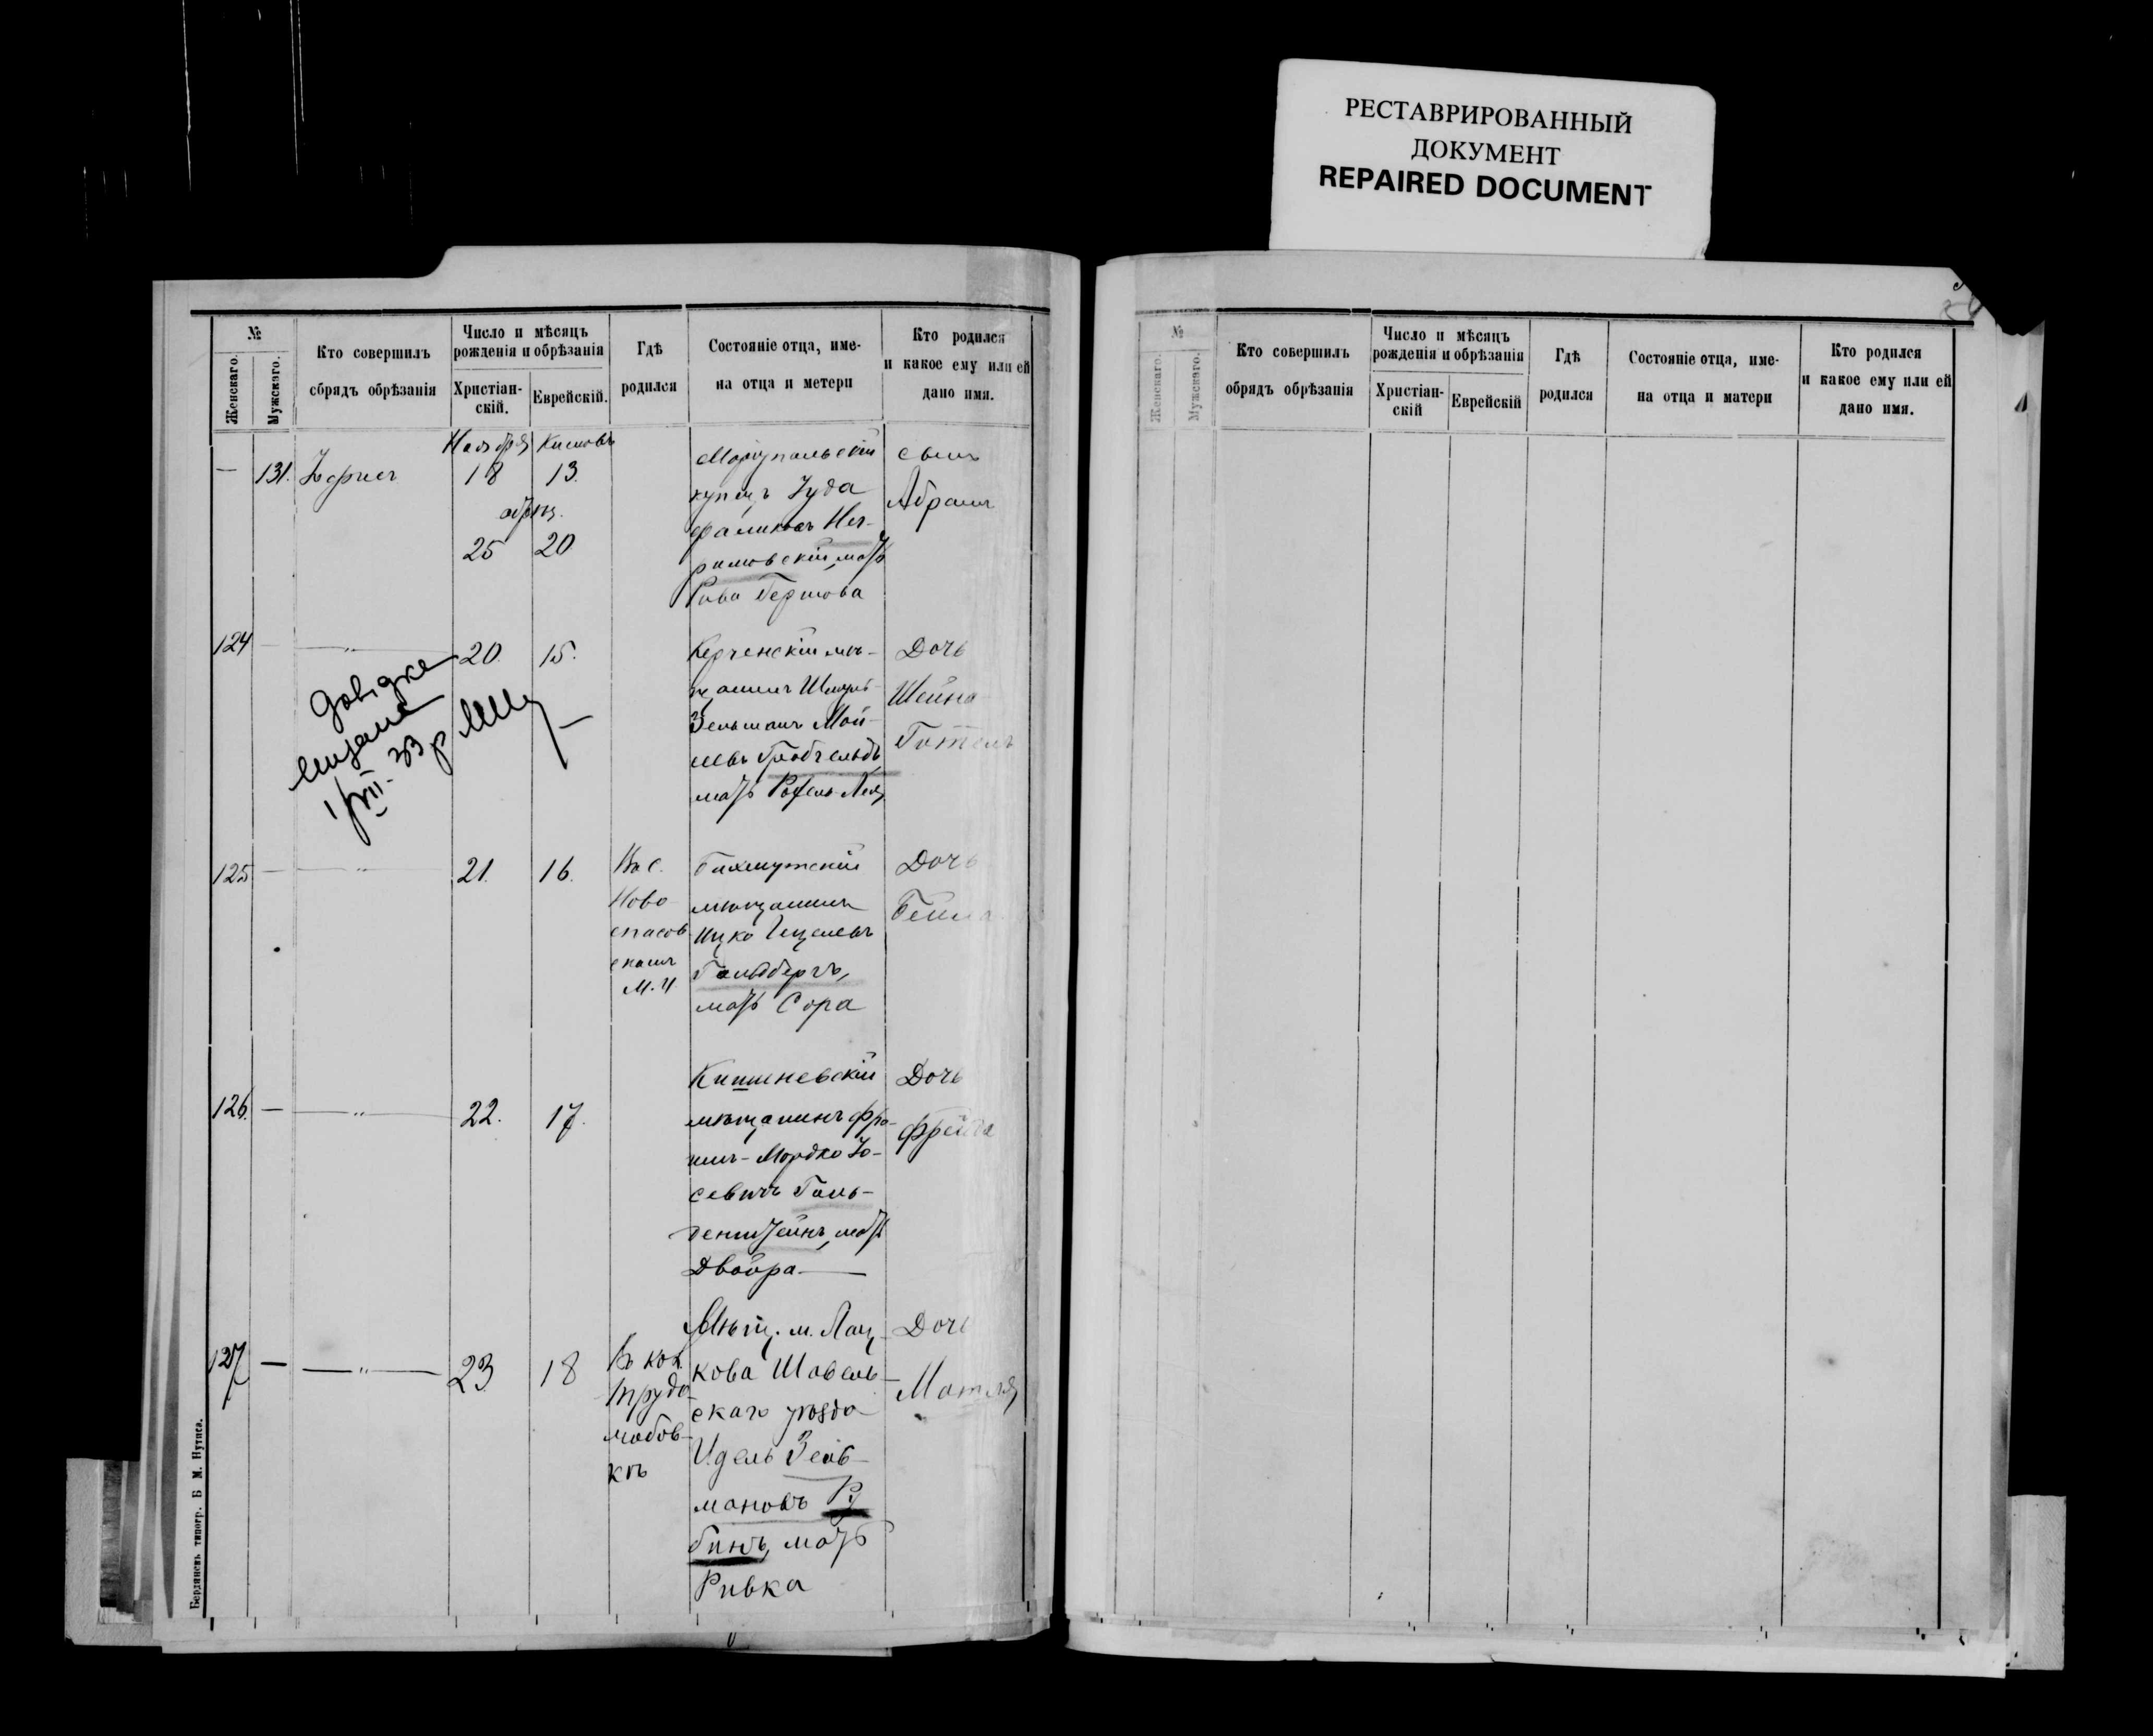 РЕСТАВРИРОВАННЫЙ
ДОКУМЕНТ
REPAIRED DOCUMENT
№
Женскаго.
Мужскаго.
Кто совершилъ
сбрядъ обрѣзанія
Число и мѣсяцъ
рожденія и обрѣзанія
Христіан-
скій.
Еврейскій.
Гдѣ
родился
Состояніе отца, име-
на отца и метери
Кто родился
и какое ему или ей
дано имя.
— 131.
Ноября
18
обрѣз.
25
Кислевъ
13
20
Маріупольскій
купецъ Іуда
мать
Рива Гершова
сынъ
Абрамъ
124 —
— " —
20.
15.
Керченскій мѣ-
щанинъ Шмуль
Зельманъ Мой-
мать Рахель-Лея
Дочь
Шейна
125 —
— " —
21.
16.
Въ с.
Ново
спасов
скомъ
М. У.
Бахмутскій
мѣщанинъ
Ицко
Гольдбергъ,
мать Сора
Дочь
Бейла
126. —
— " —
22.
17.
Кишиневскій
мѣщанинъ Фро-
имъ-Мордко Іо-
севичъ Голь-
денштейнъ, мать
Двойра —
Дочь
Фрейда
127 —
— " —
23
18
Въ кол.
Трудо-
любов-
кѣ
Мѣщ. м. Лац-
кова Шавель-
скаго уѣзда
Идель Зель-
мановъ Ру
бинъ, мать
Ривка
Дочь
Матля
Бердянскъ типогр. Б М. Нутиса.
№
Женскаго.
Мужскаго.
Кто совершилъ
обрядъ обрѣзанія
Число и мѣсяцъ
рожденія и обрѣзанія
Христіан-
скій
Еврейскій
Гдѣ
родился
Состояніе отца, име-
на отца и матери
Кто родился
и какое ему или ей
дано имя.